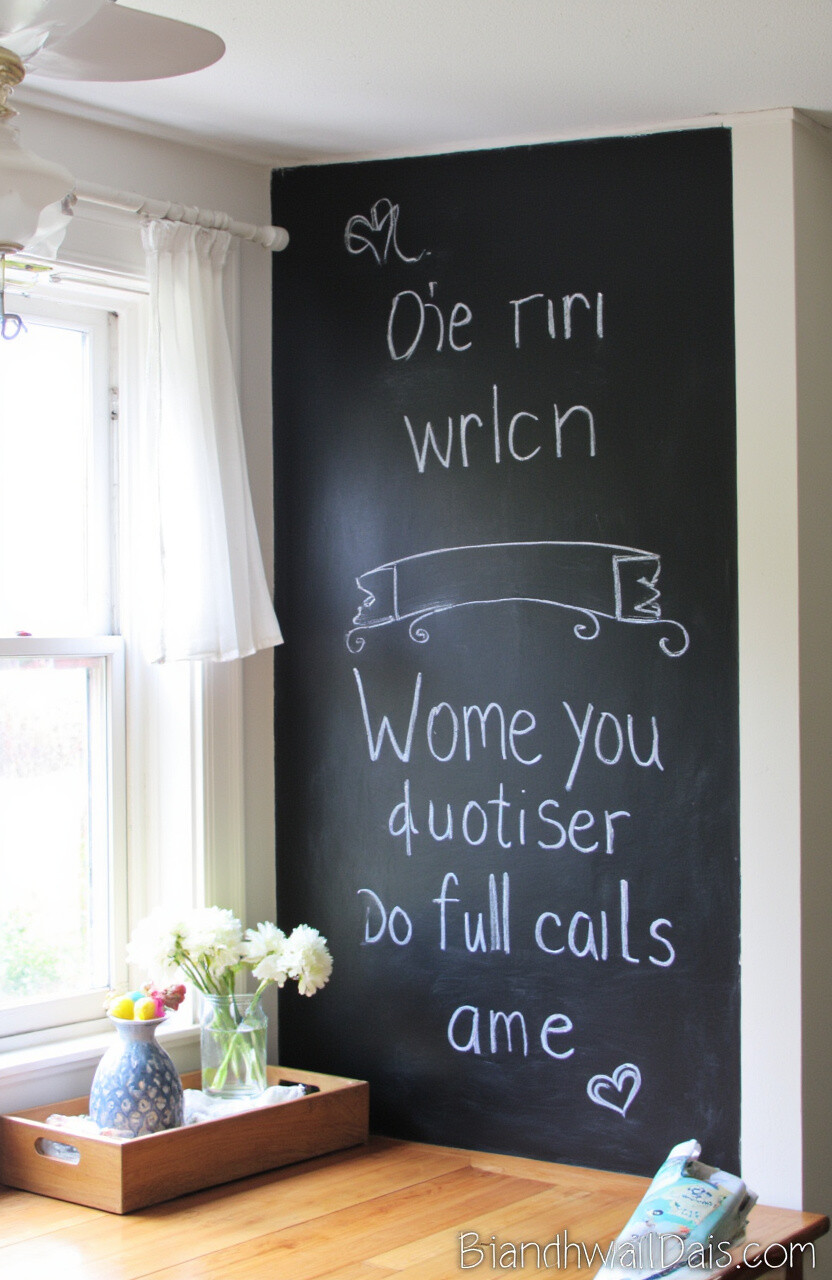 Oie rırı
wrlcn
Wome you
quotiser
Do full caıls
ame
BiandhwallDais.com